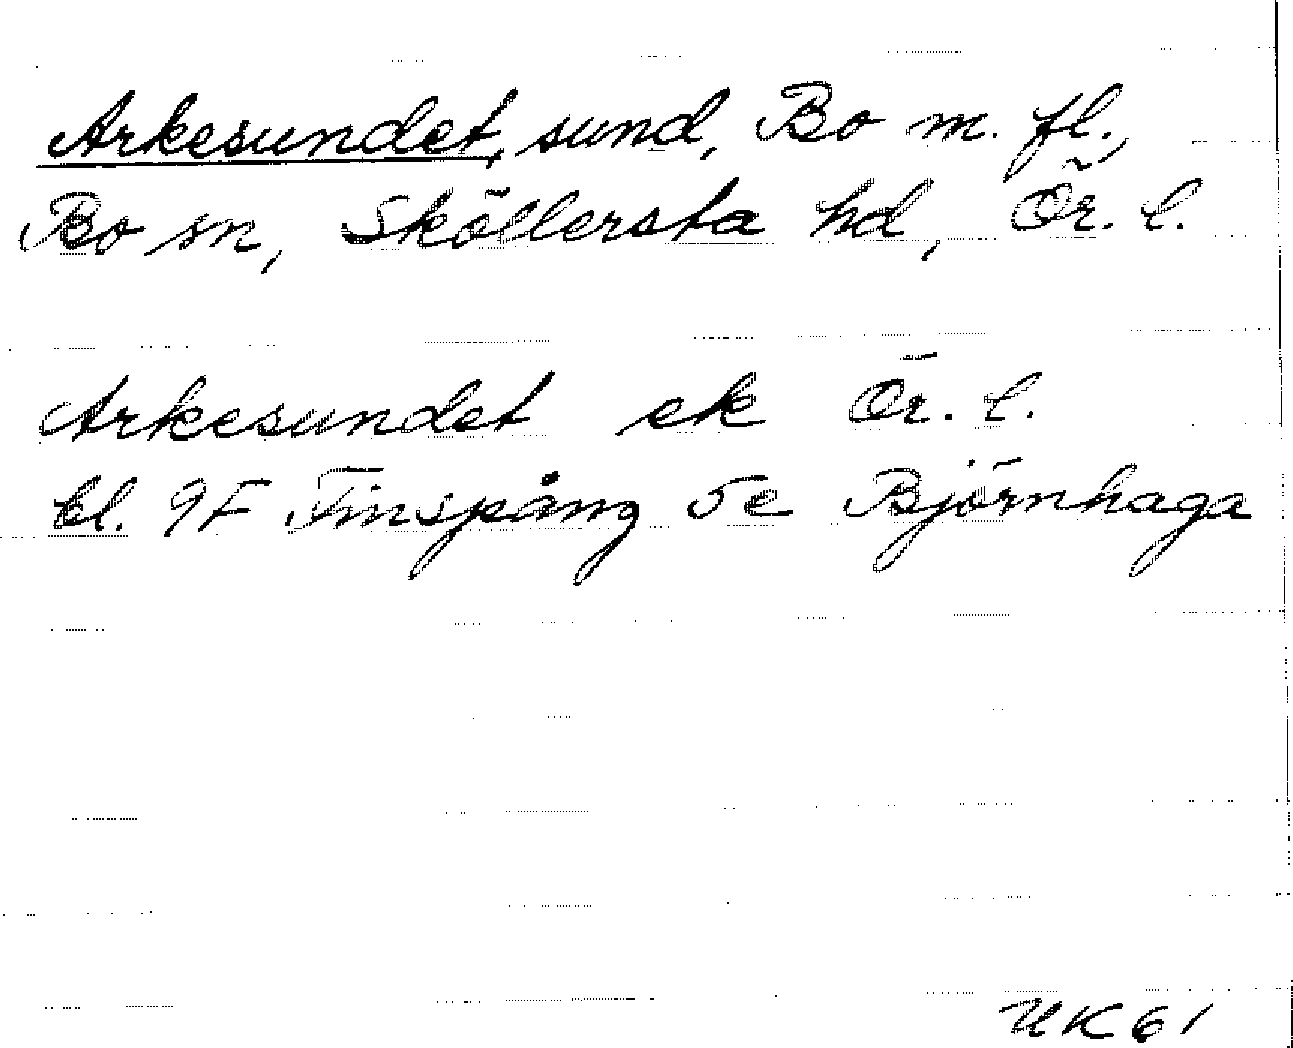 Arkesundet, sund, Bo m. fl.,
Bo sn, Sköllersta hd, Ör. l.
Arkesundet ek Ör. l.
bl. 9F Finspång 5e Björnhaga
UK 61